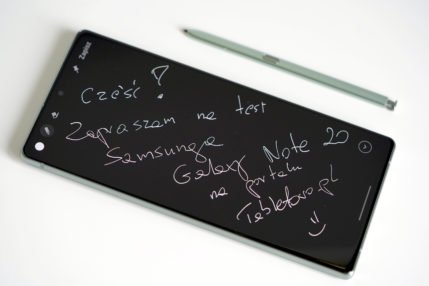 Zapisz
Cześć!
Zapraszam na test
Samsunga
Galaxy Note 20
na portalu
Tabletowo.pl
:)